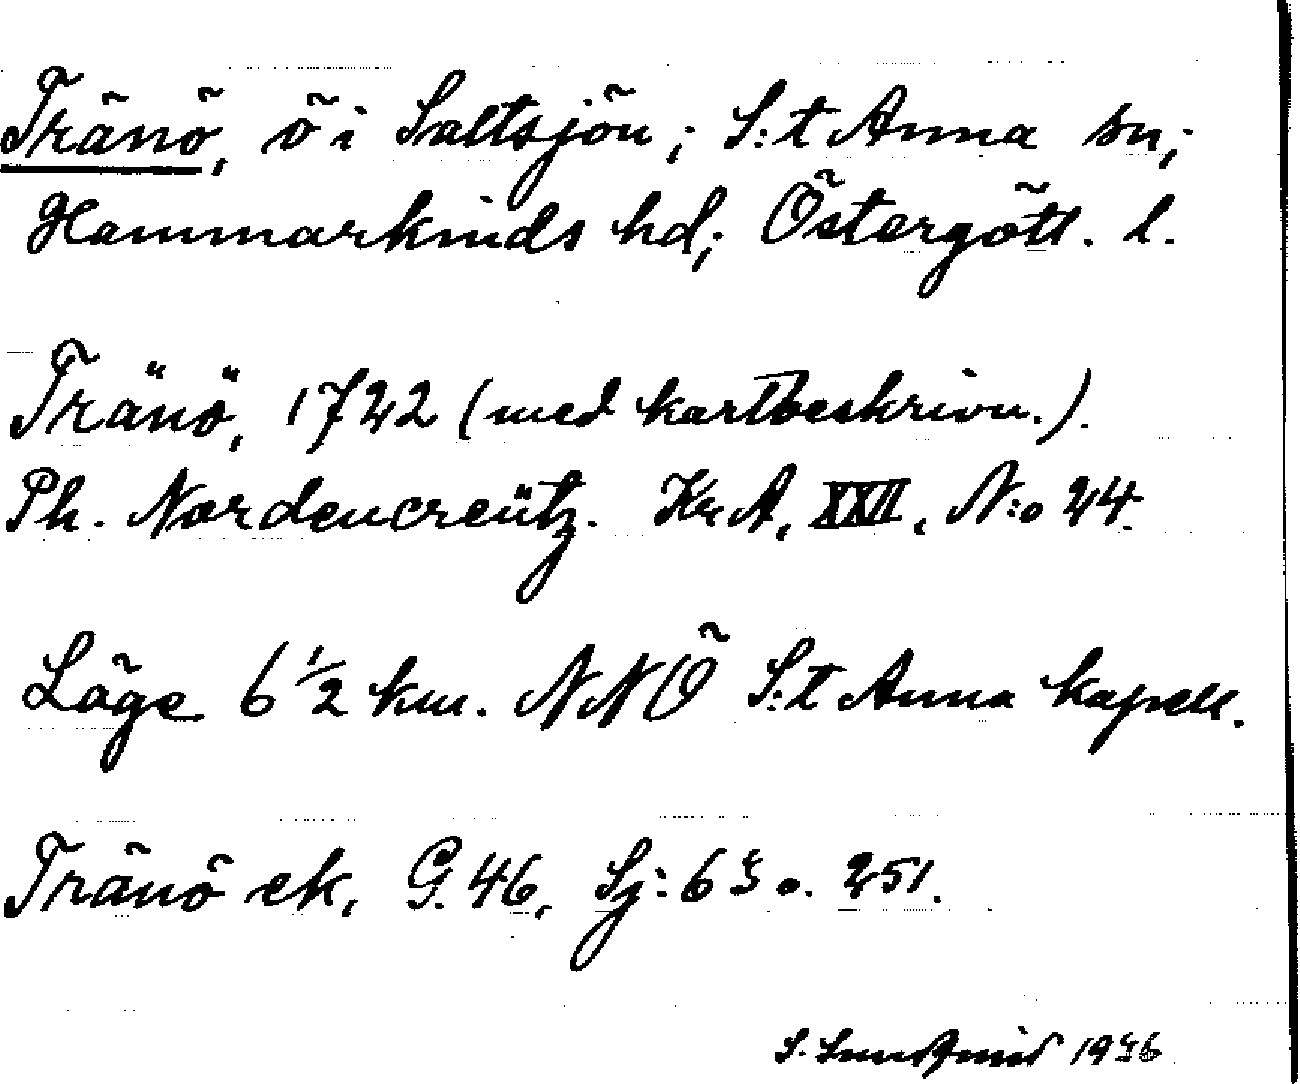 Tränö, ö i Saltsjön; S:t Anna sn;
Hammarkinds hd; Östergötl. l.
Tränö, 1722 (med kartbeskrivn.).
Ph. Nordencreütz. Kr. A, XXII, N:o 24.
Läge 6 1/2 km. NNÖ S:t Anna kapell.
Tränö ek, G. 46, Sj: 63 o. 251.
S. 1946